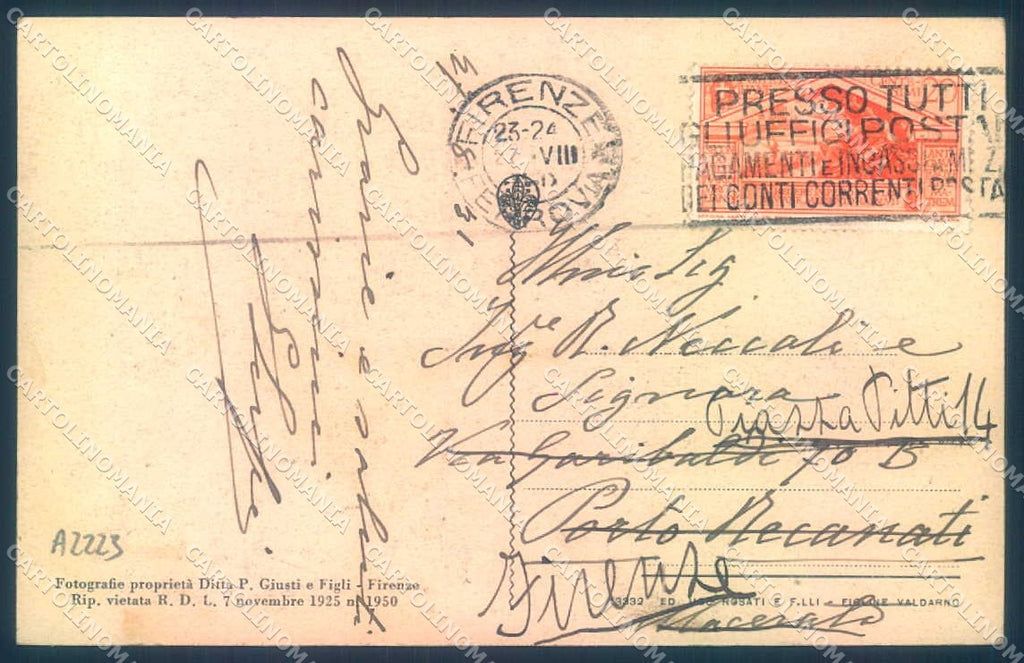 FIRENZE
23-24
VIII
PRESSO TUTTI
UFFICI POSTA
PAGAMENTI E INCASSI A MEZ
DEI CONTI CORRENTI POSTA
Grazie e
carissimi
Sig
Ing.re R. Niccoli e
Signora
Piazza Pitti 14
Via Garibaldi 70 B
Porto Recanati
Firenze
Macerata
A2223
Fotografie proprietà Ditta P. Giusti e Figli - Firenze
Rip. vietata R. D. L. 7 novembre 1925 n. 1950
3332 ED. UGO ROSATI E F.LLI - FIGLINE VALDARNO
CARTOLINOMANIA